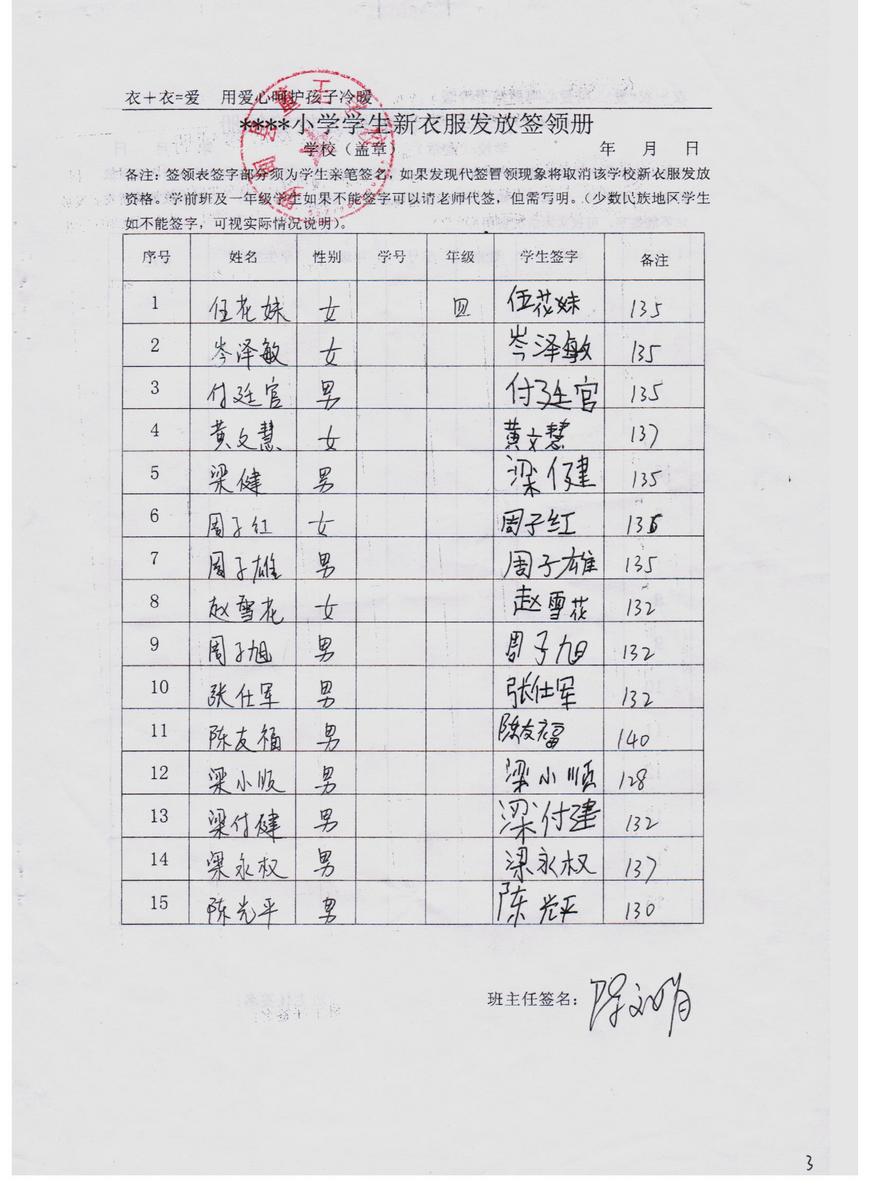 衣＋衣=爱 用爱心呵护孩子冷暖
****小学学生新衣服发放签领册
学校（盖章） 年 月 日
备注：签领表签字部分须为学生亲笔签名，如果发现代签冒领现象将取消该学校新衣服发放
资格。学前班及一年级学生如果不能签字可以请老师代签，但需写明。（少数民族地区学生
如不能签字，可视实际情况说明）。
序号 姓名 性别 学号 年级 学生签字 备注
1 伍花妹 女 四 伍花妹 135
2 岑泽敏 女 岑泽敏 135
3 付廷官 男 付廷官 135
4 黄文慧 女 黄文慧 137
5 梁健 男 梁健 135
6 周子红 女 周子红 135
7 周子雄 男 周子雄 135
8 赵雪花 女 赵雪花 132
9 周子旭 男 周子旭 132
10 张仕军 男 张仕军 132
11 陈友福 男 陈友福 140
12 梁小顺 男 梁小顺 128
13 梁付健 男 梁付建 132
14 梁永权 男 梁永权 137
15 陈光平 男 陈光平 130
班主任签名：
3